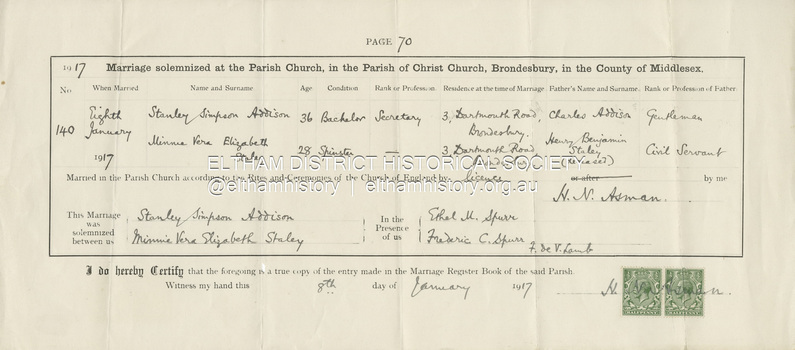 PAGE 70
1917 Marriage solemnized at the Parish Church, in the Parish of Christ Church, Brondesbury, in the County of Middlesex.
No When Married Name and Surname Age Condition Rank or Profession Residence at the time of Marriage. Father's Name and Surname. Rank or Profession of Father.
140 Eighth January 1917 Stanley Simpson Addison 36 Bachelor Secretary 3, Dartmouth Road, Brondesbury. Charles Addison Gentleman
Minnie Vera Elizabeth Staley 28 Spinster — 3, Dartmouth Road, Brondesbury Henry Benjamin Staley (deceased) Civil Servant
ELTHAM DISTRICT HISTORICAL SOCIETY
@elthamhistory | elthamhistory.org.au
Married in the Parish Church according to the Rites and Ceremonies of the Church of England by licence or after by me
H. N. Asman.
This Marriage was solemnized between us
Stanley Simpson Addison
Minnie Vera Elizabeth Staley
In the Presence of us
Ethel M. Spurr
Frederic C. Spurr
F. de V. Lamb
I do hereby Certify that the foregoing is a true copy of the entry made in the Marriage Register Book of the said Parish.
Witness my hand this 8th day of January 1917 H. N. Asman.
HALFPENNY HALFPENNY